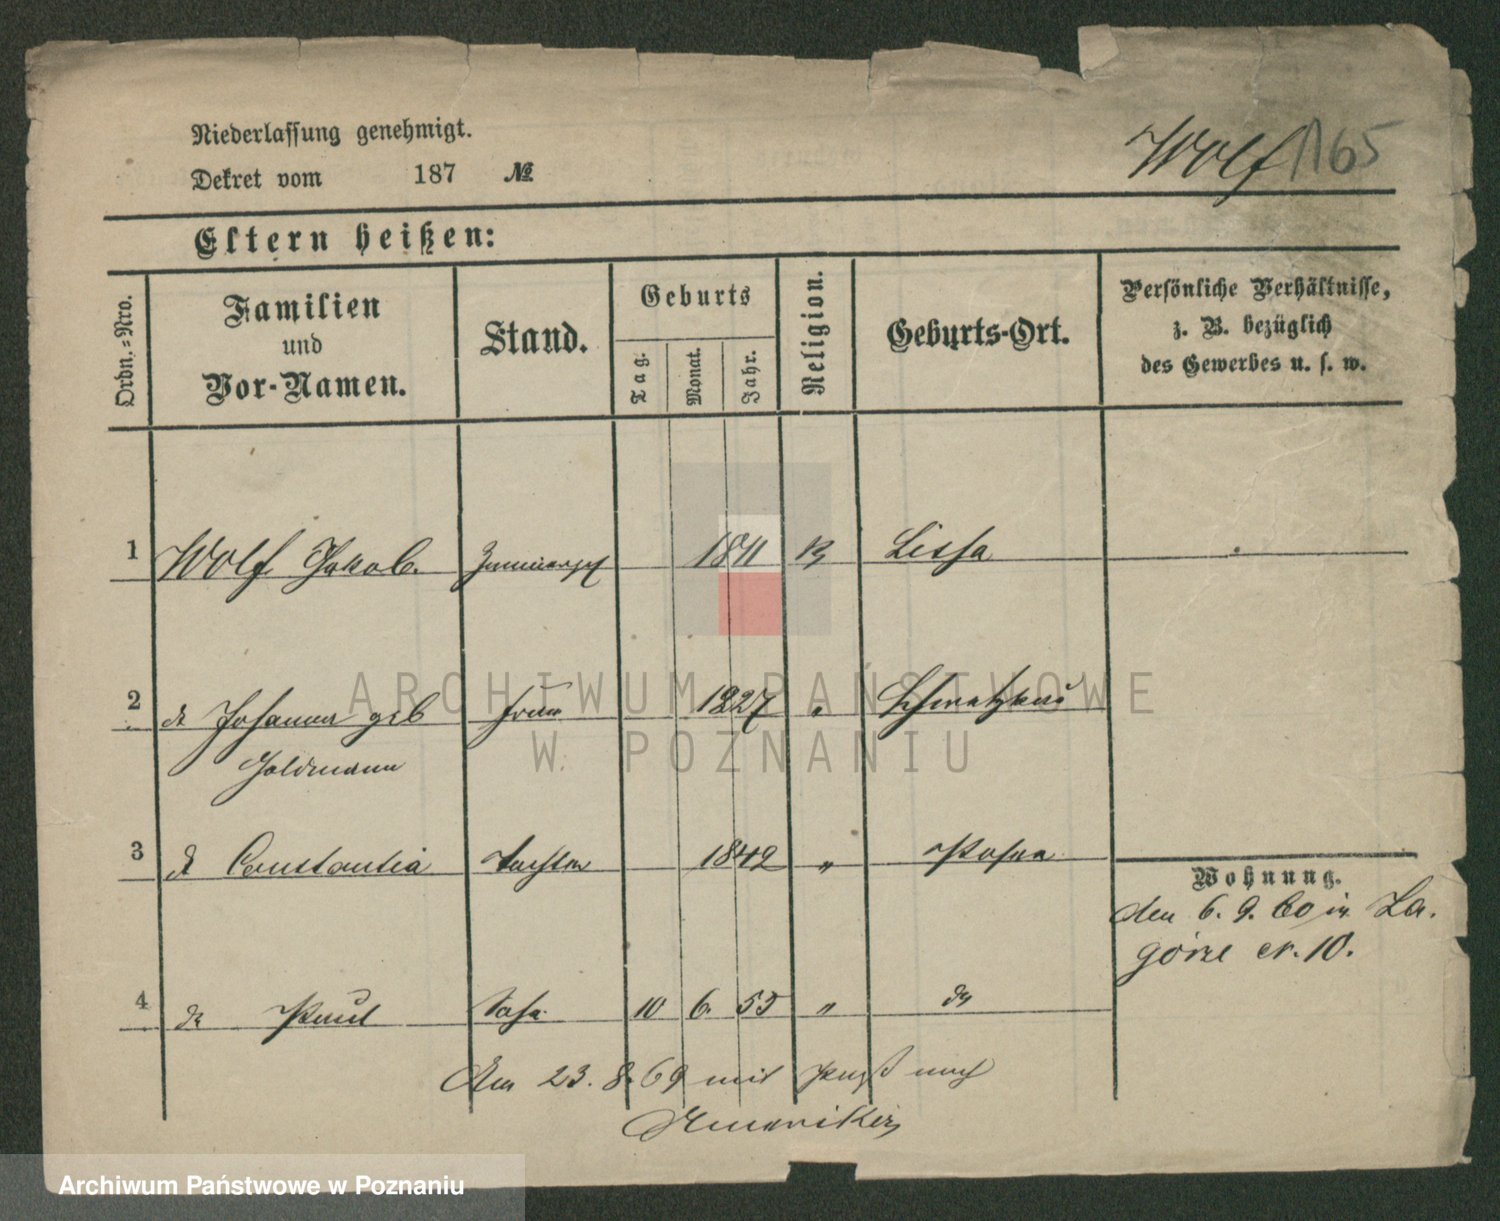 Niederlassung genehmigt.
Dekret vom 187 №
Wolf 1165
Eltern heißen:
Ordn.=Nro.
Familien und Vor-Namen.
Stand.
Geburts
Tag.
Monat.
Jahr.
Religion.
Geburts-Ort.
Persönliche Verhältnisse,
z. B. bezüglich
des Gewerbes u. s. w.
1 Wolf Jakob. 1811 Lissa
2 do Johanna geb Frau 1827 "
Goldmann
3 do Constantia Tochter 1842 " Posen
Wohnung.
den 6. 9. 60 in La.
gorze Nr. 10.
4 do Paul Sohn 10 6. 55 " do
Am 23. 8. 69 mit Paß nach
Amerika
ARCHIWUM PAŃSTWOWE
W POZNANIU
Archiwum Państwowe w Poznaniu